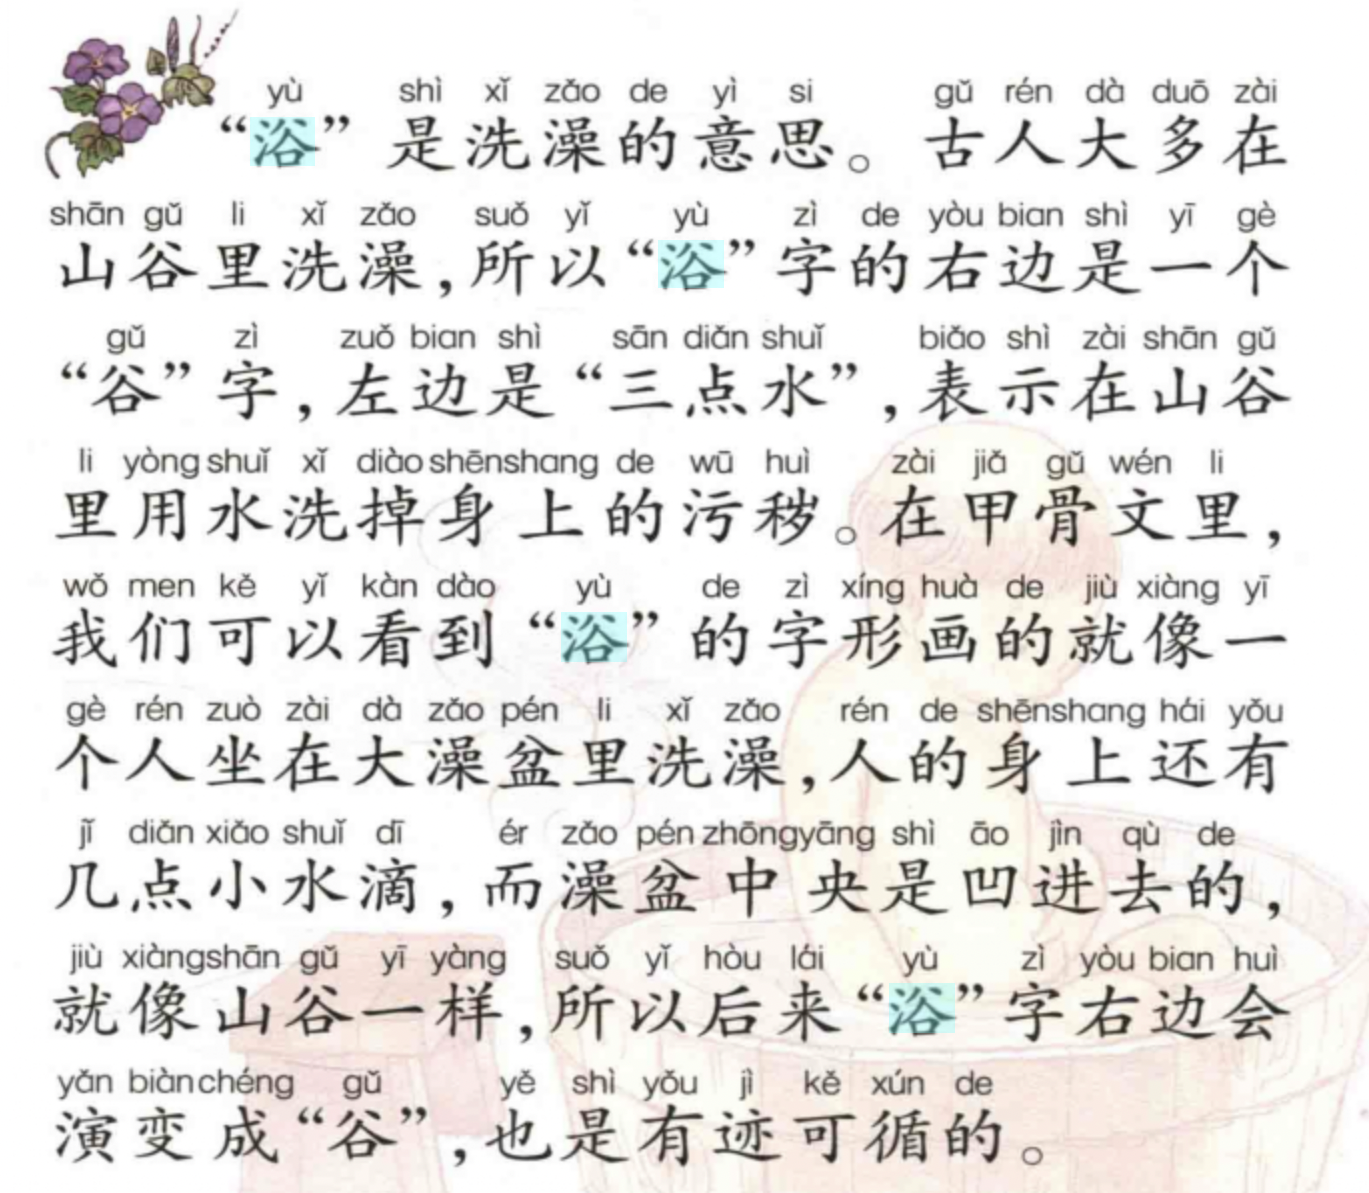 yù shì xǐ zǎo de yì si gǔ rén dà duō zài
“浴”是洗澡的意思。古人大多在
shān gǔ li xǐ zǎo suǒ yǐ yù zì de yòu bian shì yī gè
山谷里洗澡,所以“浴”字的右边是一个
gǔ zì zuǒ bian shì sān diǎn shuǐ biǎo shì zài shān gǔ
“谷”字,左边是“三点水”,表示在山谷
li yòng shuǐ xǐ diào shēnshang de wū huì zài jiǎ gǔ wén li
里用水洗掉身上的污秽。在甲骨文里,
wǒ men kě yǐ kàn dào yù de zì xíng huà de jiù xiàng yī
我们可以看到“浴”的字形画的就像一
gè rén zuò zài dà zǎo pén li xǐ zǎo rén de shēnshang hái yǒu
个人坐在大澡盆里洗澡,人的身上还有
jǐ diǎn xiǎo shuǐ dī ér zǎo pén zhōngyāng shì āo jìn qù de
几点小水滴,而澡盆中央是凹进去的,
jiù xiàngshān gǔ yī yàng suǒ yǐ hòu lái yù zì yòu bian huì
就像山谷一样,所以后来“浴”字右边会
yǎn biànchéng gǔ yě shì yǒu jì kě xún de
演变成“谷”,也是有迹可循的。